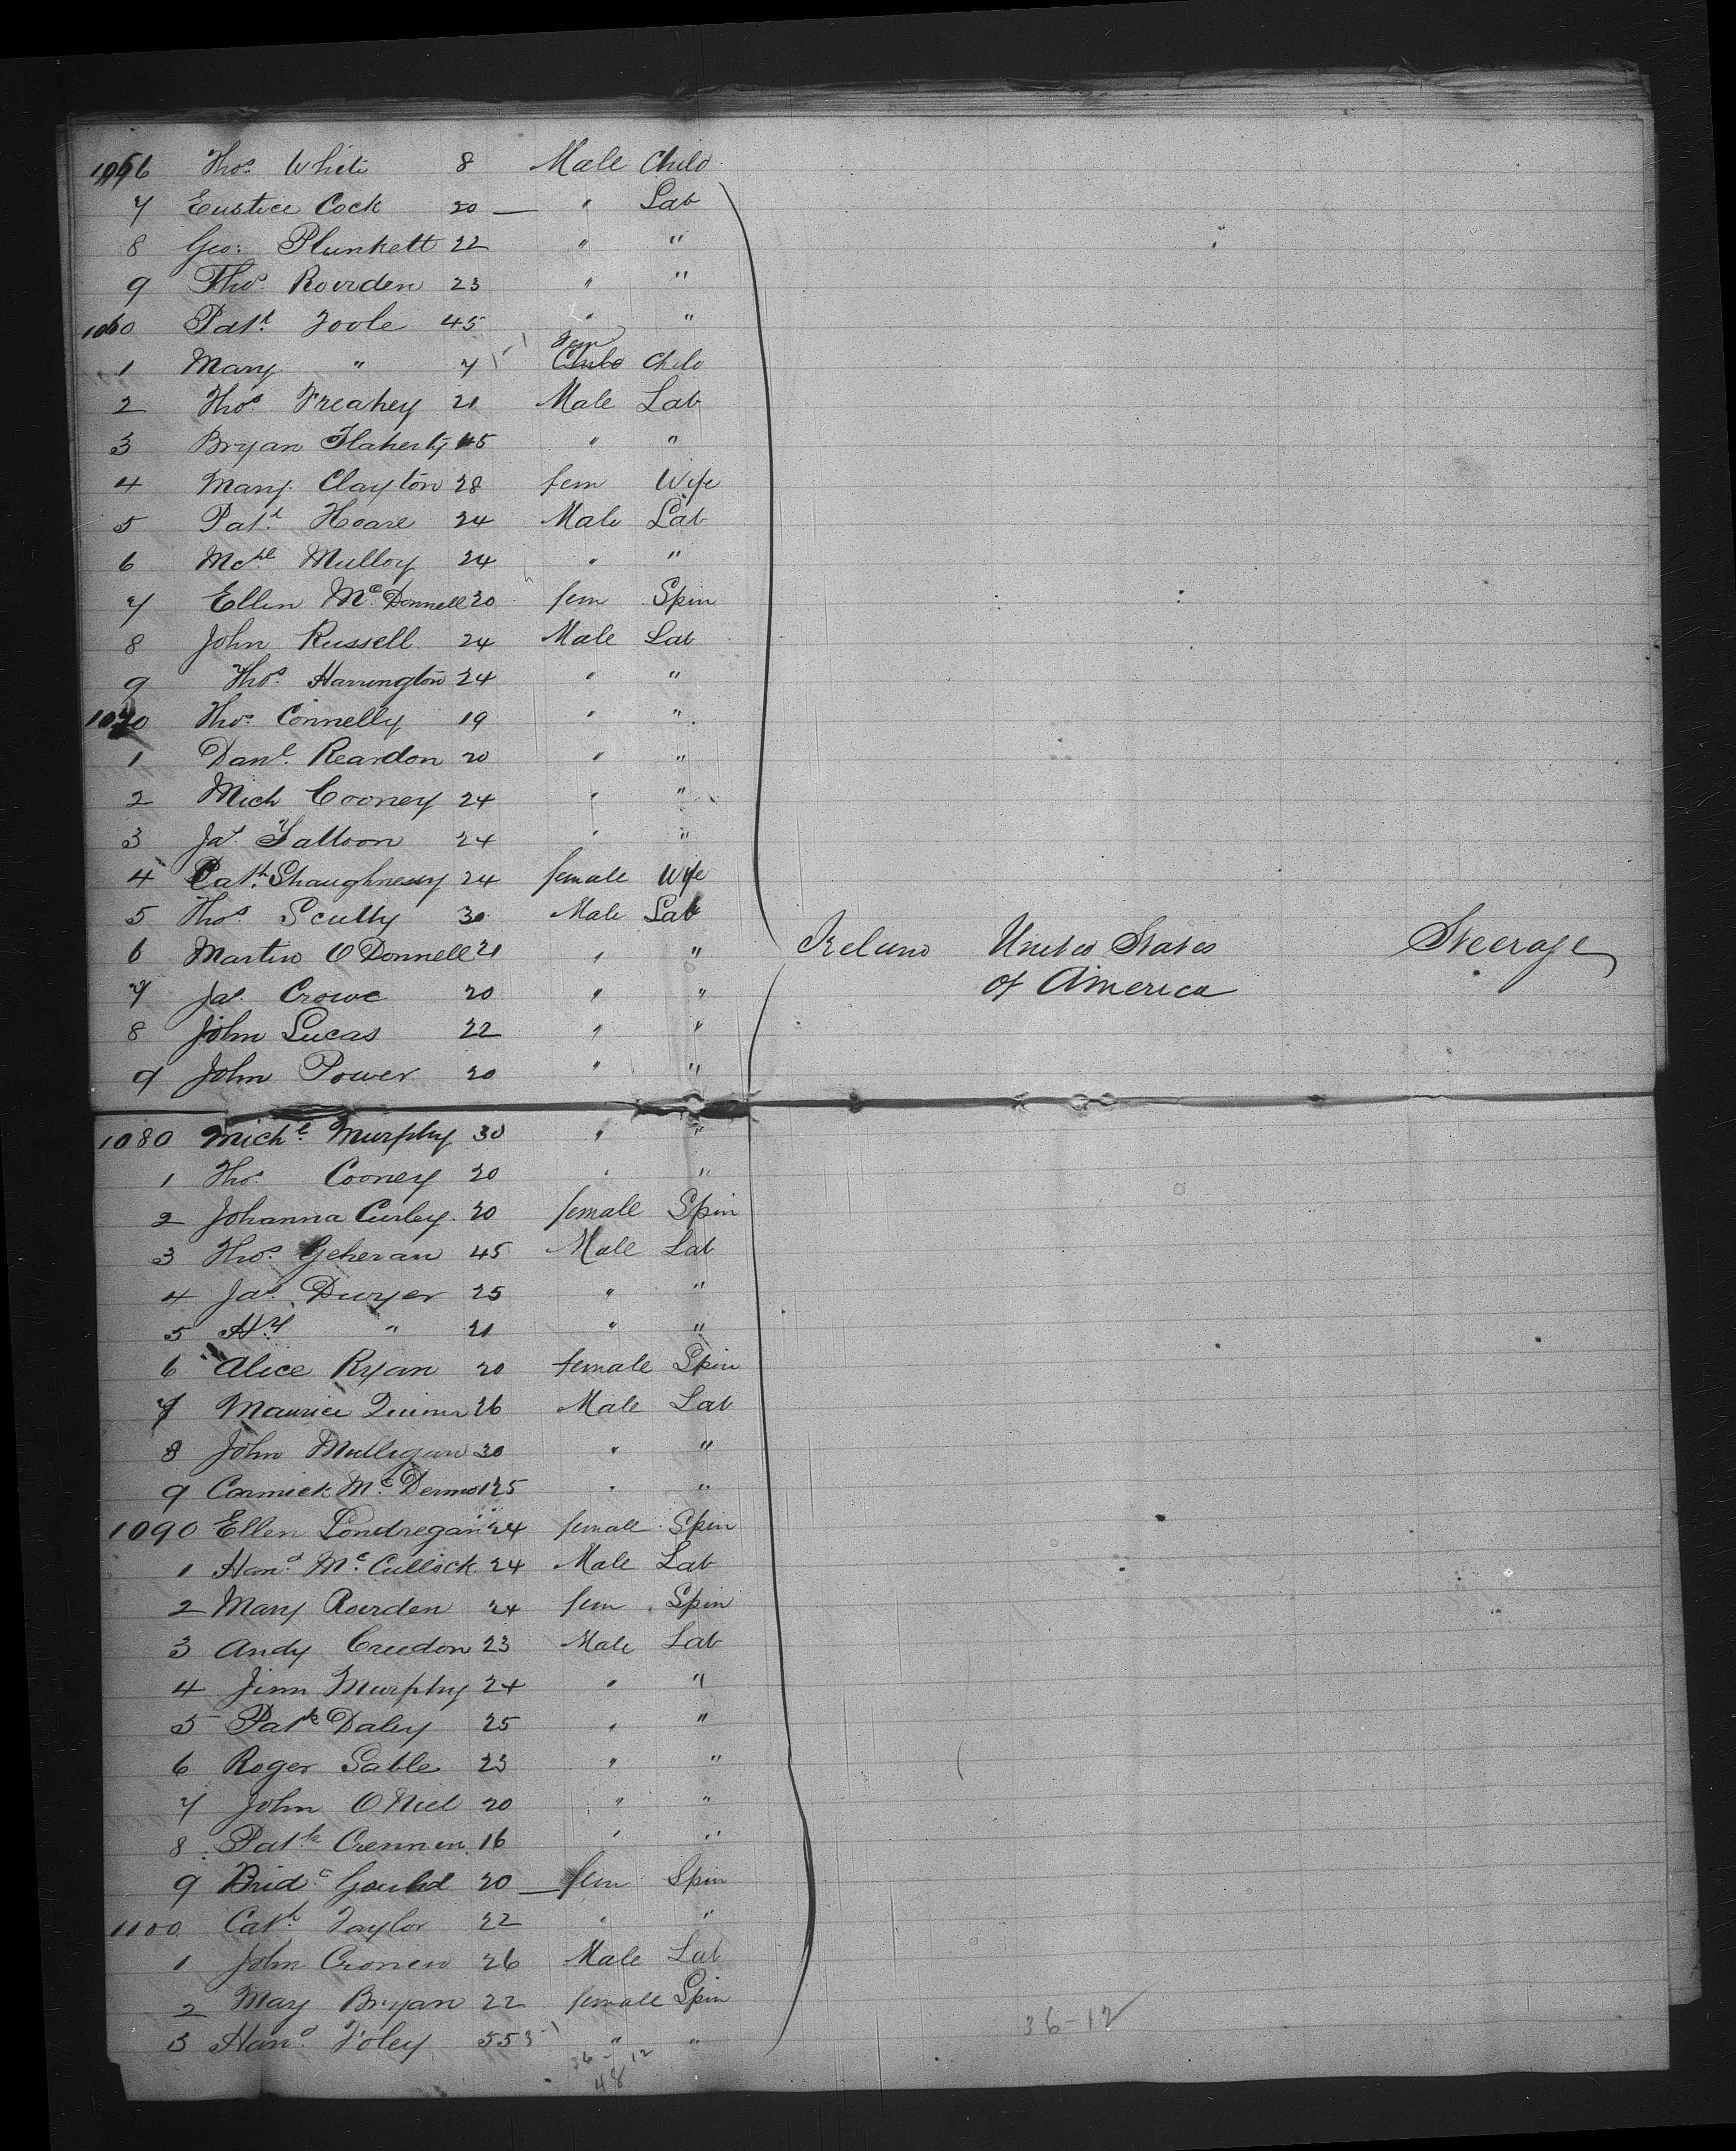 1056 Thos. White 8 Male Child
7 Eustice Cock 20 — " Lab
8 Geo: Plunkett 22 " "
9 Thos. Rourden 23 " "
1060 Patk. Toole 45 " "
fem
1 Mary " 7 Child Child
2 Thos. Freahey 21 Male Lab
3 Bryan Flaherty 45 " "
4 Mary Clayton 28 fem Wife
5 Patk. Hoare 24 Male Lab
6 Mchl Mulloy 24 " "
7 Ellen Mc. Donnell 20 fem Spin
8 John Russell 24 Male Lab
9 Thos. Harrington 24 " "
1070 Thos. Connelly 19 " "
1 Danl. Reardon 20 " "
2 Mich Cooney 24 " "
3 Jas. Falloon 24 " "
4 Cath. Shaughnessy 24 female Wife
5 Thos. Scully 30 Male Lab
6 Martin O Donnell 21 " " Ireland United States Steerage
7 Jas. Crowe 20 " " of America
8 John Lucas 22 " "
9 John Power 20 " "
1080 Michl. Murphy 30 " "
1 Thos. Cooney 20 " "
2 Johanna Curley 20 female Spin
3 Thos. Geheran 45 Male Lab
4 Jas. Dwyer 25 " "
5 Hy. " 21 " "
6 Alice Ryan 20 female Spin
7 Maurice Quinn 26 Male Lab
8 John Mulligan 30 " "
9 Cormick Mc. Dermot 25 " "
1090 Ellen Londregan 24 female Spin
1 Hana. Mc. Cullock 24 Male Lab
2 Mary Rourden 24 fem Spin
3 Andy Creedon 23 Male Lab
4 Jim Murphy 24 " "
5 Patk Daley 25 " "
6 Roger Sable 23 " "
7 John O Niel 20 " "
8 Patk Crennen 16 " "
9 Brid. Gould 20 — fem Spin
1100 Cath. Taylor 22 " "
1 John Cronin 26 Male Lab
2 May Bryan 22 female Spin
3 Hana. Foley 55 " "
36-12
36 - 12
48